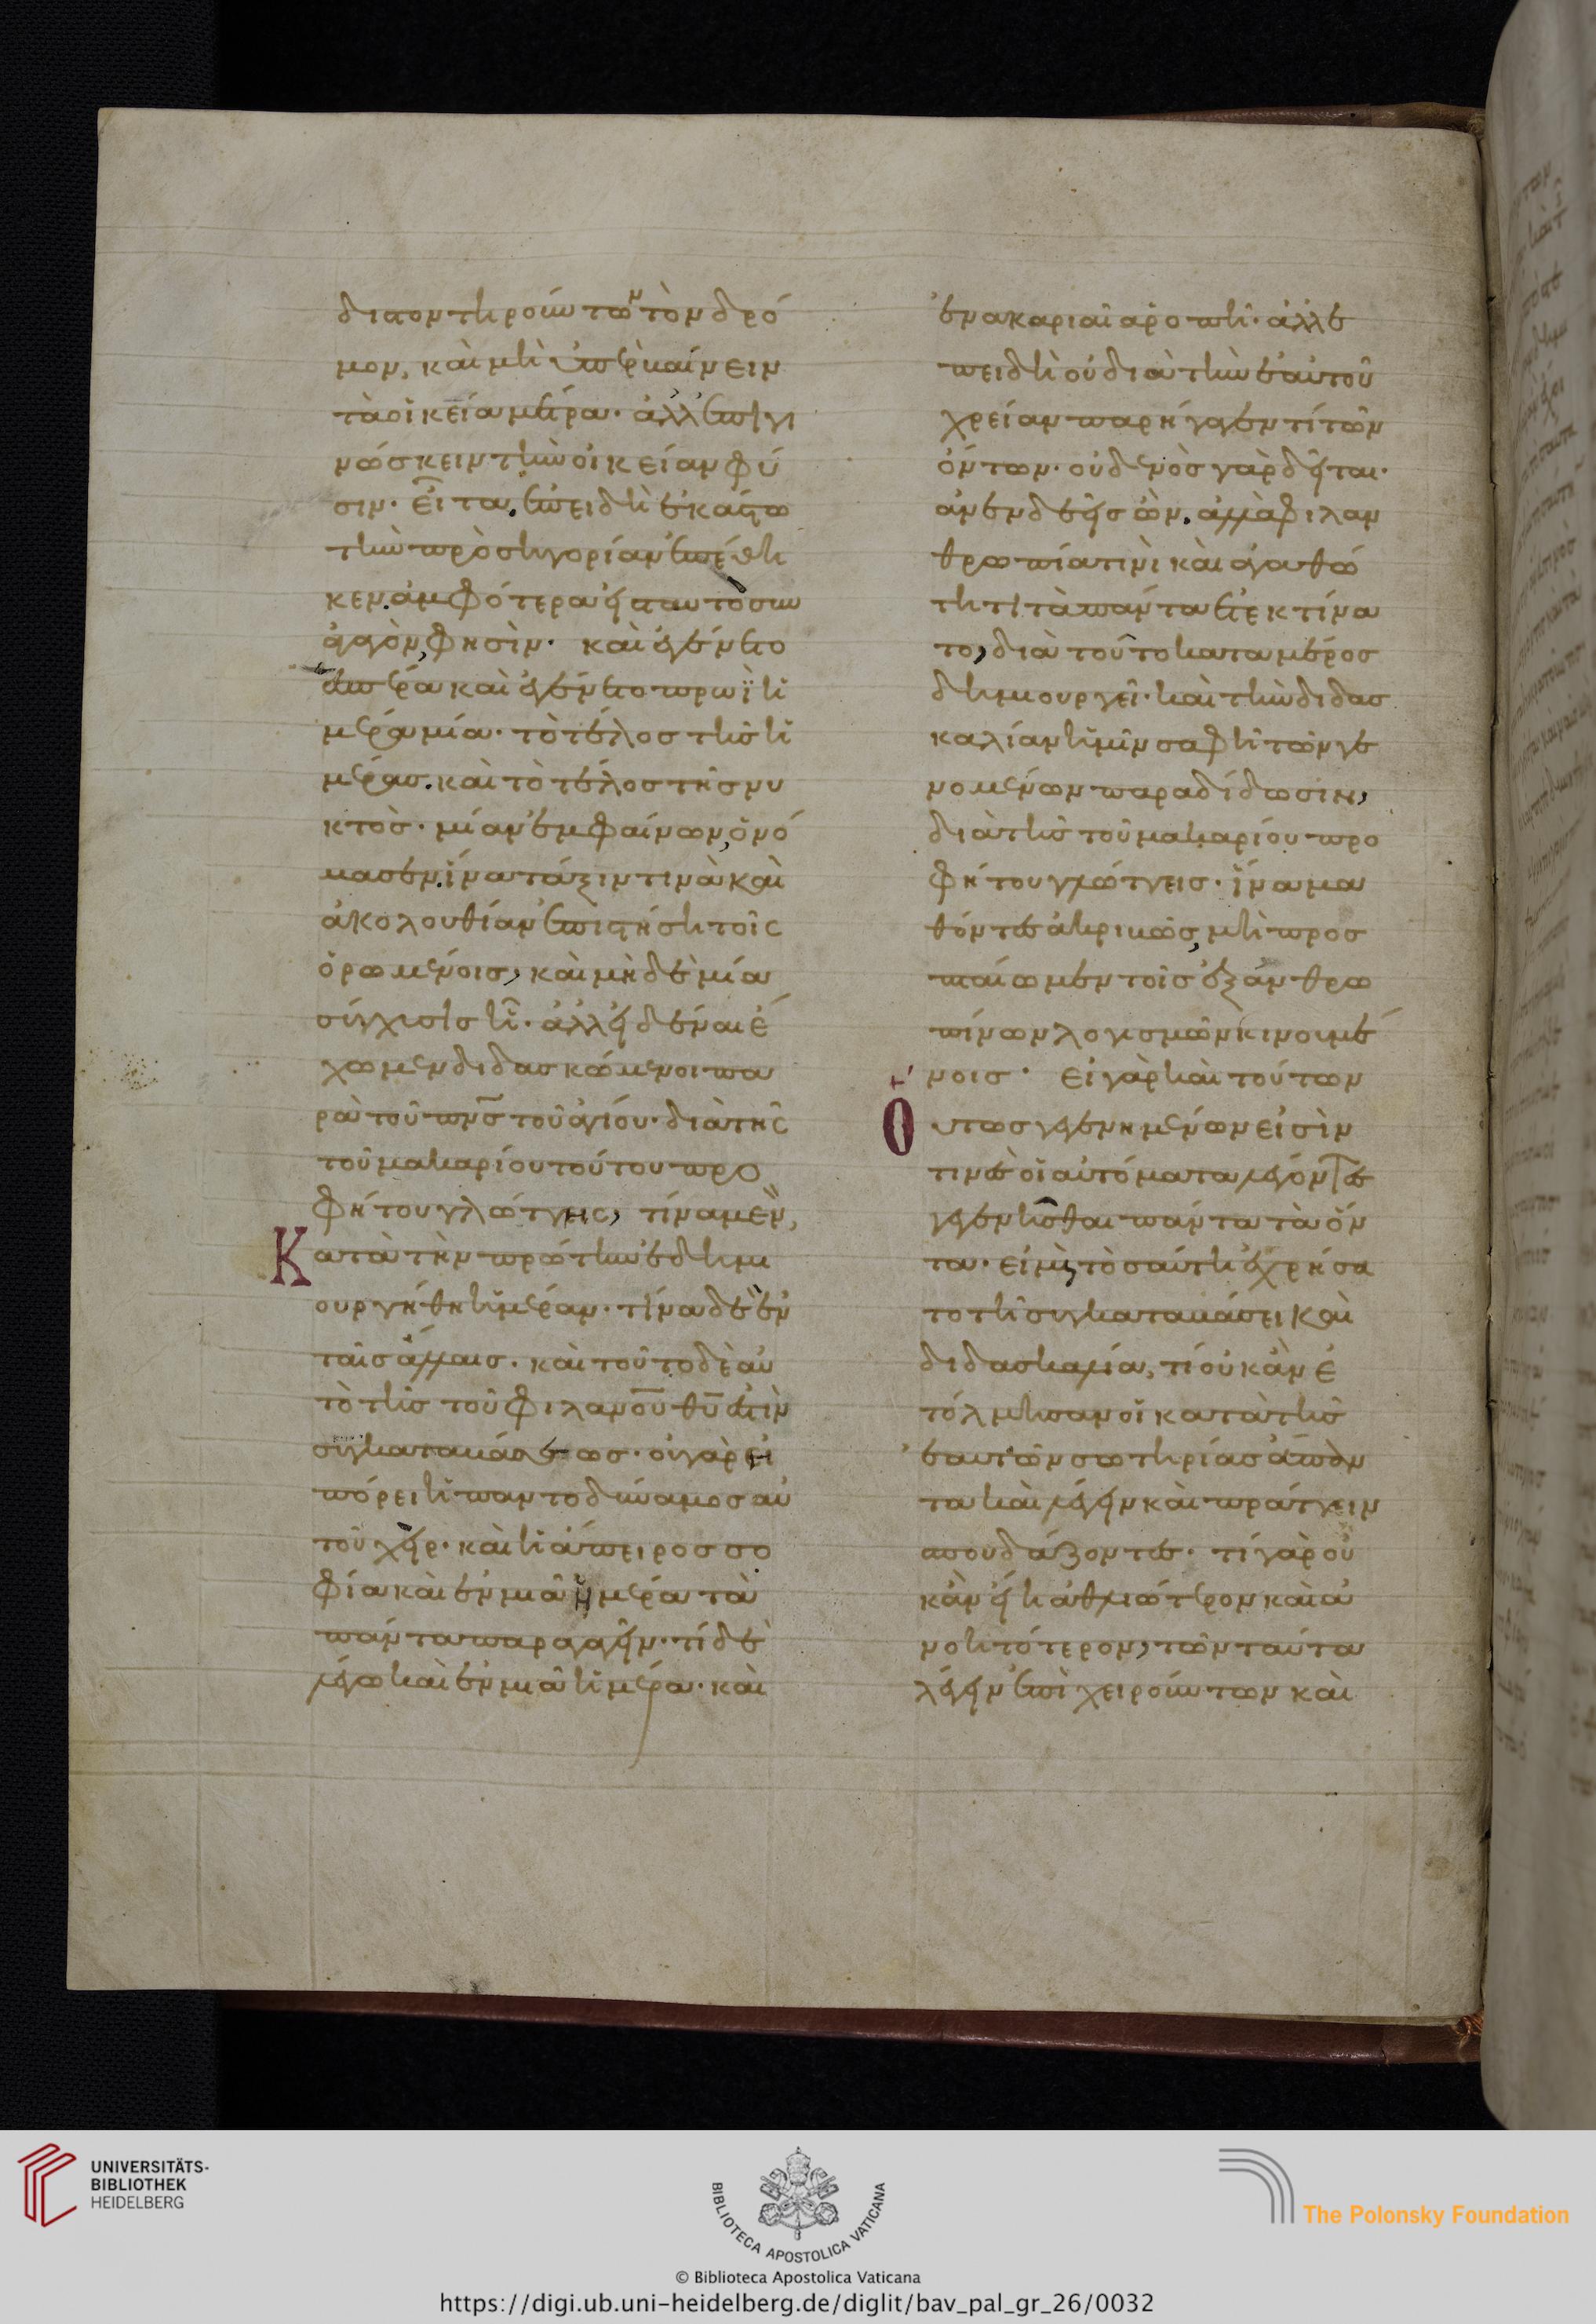 διον τηροῦντων τὸν δρό
μον, καὶ μὴ ὑπερβαίνειν
τὰ οἰκεῖα μέτρα· ἀλλ' ἐπιγι
νώσκειν τὴν οἰκείαν φύ
σιν. εἶτα, ἐπειδὴ ἑκάστω
τὴν προσηγορίαν ἐπέθη
κεν. ἀμφότερα εἰς ταυτὸ συν
αγαγὸν, φησὶν. καὶ ἐγένετο
ἑσπέρα καὶ ἐγένετο πρωῒ ἡ
μέρα μία. τὸ τέλος τῆς ἡ
μέρας. καὶ τὸ τέλος τῆς νυ
κτὸς. μίαν ἐμφαίνων, ὀνό
μασεν. ἵνα τάξιν τινὰ καὶ
ἀκολουθίαν ἐπιστήση τοῖς
ὁρωμένοις, καὶ μὴδὲμία
σύγχυσις ἦ. ἀλλ' εἰδέναι ἔ
χωμεν διδασκώμενοι πα
ρὰ τοῦ πνς τοῦ ἁγίου. διὰ τῆς
τοῦ μακαρίου τούτου προ
φήτου γλώττης, τίνα μὲν,
Κατὰ τὴν πρώτην ἐδημι
ουργήθη ἡμέραν. τίνα δὲ ἐν
ταῖς ἄλλαις. καὶ τοῦτο δὲ αὐ
τὸ τῆς τοῦ φιλανου θυ ἐστὶν
συγκαταβάσεως. οὐ γὰρ εἰ
πόρει ἡ παντοδύναμος αὐ
τοῦ χεὶρ. καὶ ἡ ἄπειρος σο
φία καὶ ἐν μιᾶ ἡμέρα τὰ
πάντα παραγαγεῖν. τί δὲ
λέγω καὶ ἐν μιᾶ ἡμέρα. καὶ
ἐν ἀκαριαία ροπῆ. ἀλλ' ἐ
πειδὴ οὐ διὰ τὴν ἑαυτοῦ
χρείαν παρήγαγεν τί τῶν
ὄντων. οὐδενὸς γὰρ δεῖται.
ἀνενδεὴς ὢν. ἀλλὰ φιλαν
θρωπία τινὶ καὶ ἀγαθό
τητι τὰ πάντα ἐτεκτίνα
το, διὰ τοῦτο κατα μέρος
δημιουργεῖ. καὶ τὴν διδας
καλίαν ἡμῖν σαφῆ τῶν γε
νομένων παραδίδωσιν,
διὰ τῆς τοῦ μακαρίου προ
φήτου γλώττεις. ἵνα μα
θόντες ἀκριβῶς, μὴ προς
πταίωμεν τοῖς ἐξ ἀνθρω
πίνων λογισμῶν κινουμέ
νοις. εἰ γὰρ καὶ τούτων
Οὕτως γεγενημένων εἰσὶν
τινὲς οἳ αὐτόματα λέγοντες
γεγενῆσθαι πάντα τὰ ὄν
τα. εἰ μὴ, τὸσαύτη ἐχρήσα
το τῆ συγκαταβάσει καὶ
διδασκαλία, τί οὐκ ἂν ἐ
τόλμησαν οἳ κατὰ τῆς
ἑαυτῶν σωτηρίας ἅπαν
τα καὶ λέγειν καὶ πράττειν
σπουδάζοντες. τί γὰρ οὐ
κἂν εἴη ἀθλιώτερον καὶ ἀ
νοητότερον, τῶν ταῦτα
λέγειν ἐπὶ χειρούντων καὶ
UNIVERSITÄTS-
BIBLIOTHEK
HEIDELBERG
BIBLIOTECA APOSTOLICA VATICANA
The Polonsky Foundation
© Biblioteca Apostolica Vaticana
https://digi.ub.uni-heidelberg.de/diglit/bav_pal_gr_26/0032